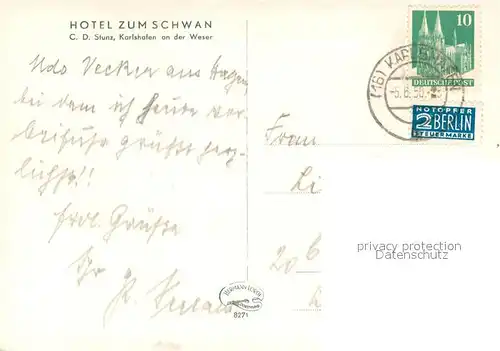 HOTEL ZUM SCHWAN
C. D. Stunz, Karlshafen an der Weser
Udo Vecker aus Hagen
bei dem ich heute vor
grüßt herz
lichst!!
frdl. Grüße
Ihr
Frau
Li
20
10
DEUTSCHE POST
(16) KARLSHAFEN
-5.8.50.
NOTOPFER
2 BERLIN
STEUERMARKE
privacy protection
Datenschutz
8271